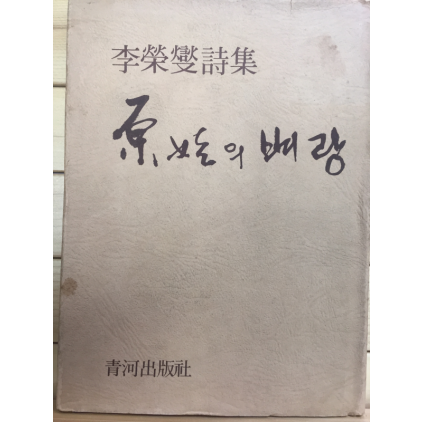 李榮燮詩集
原始의 벼랑
青河出版社